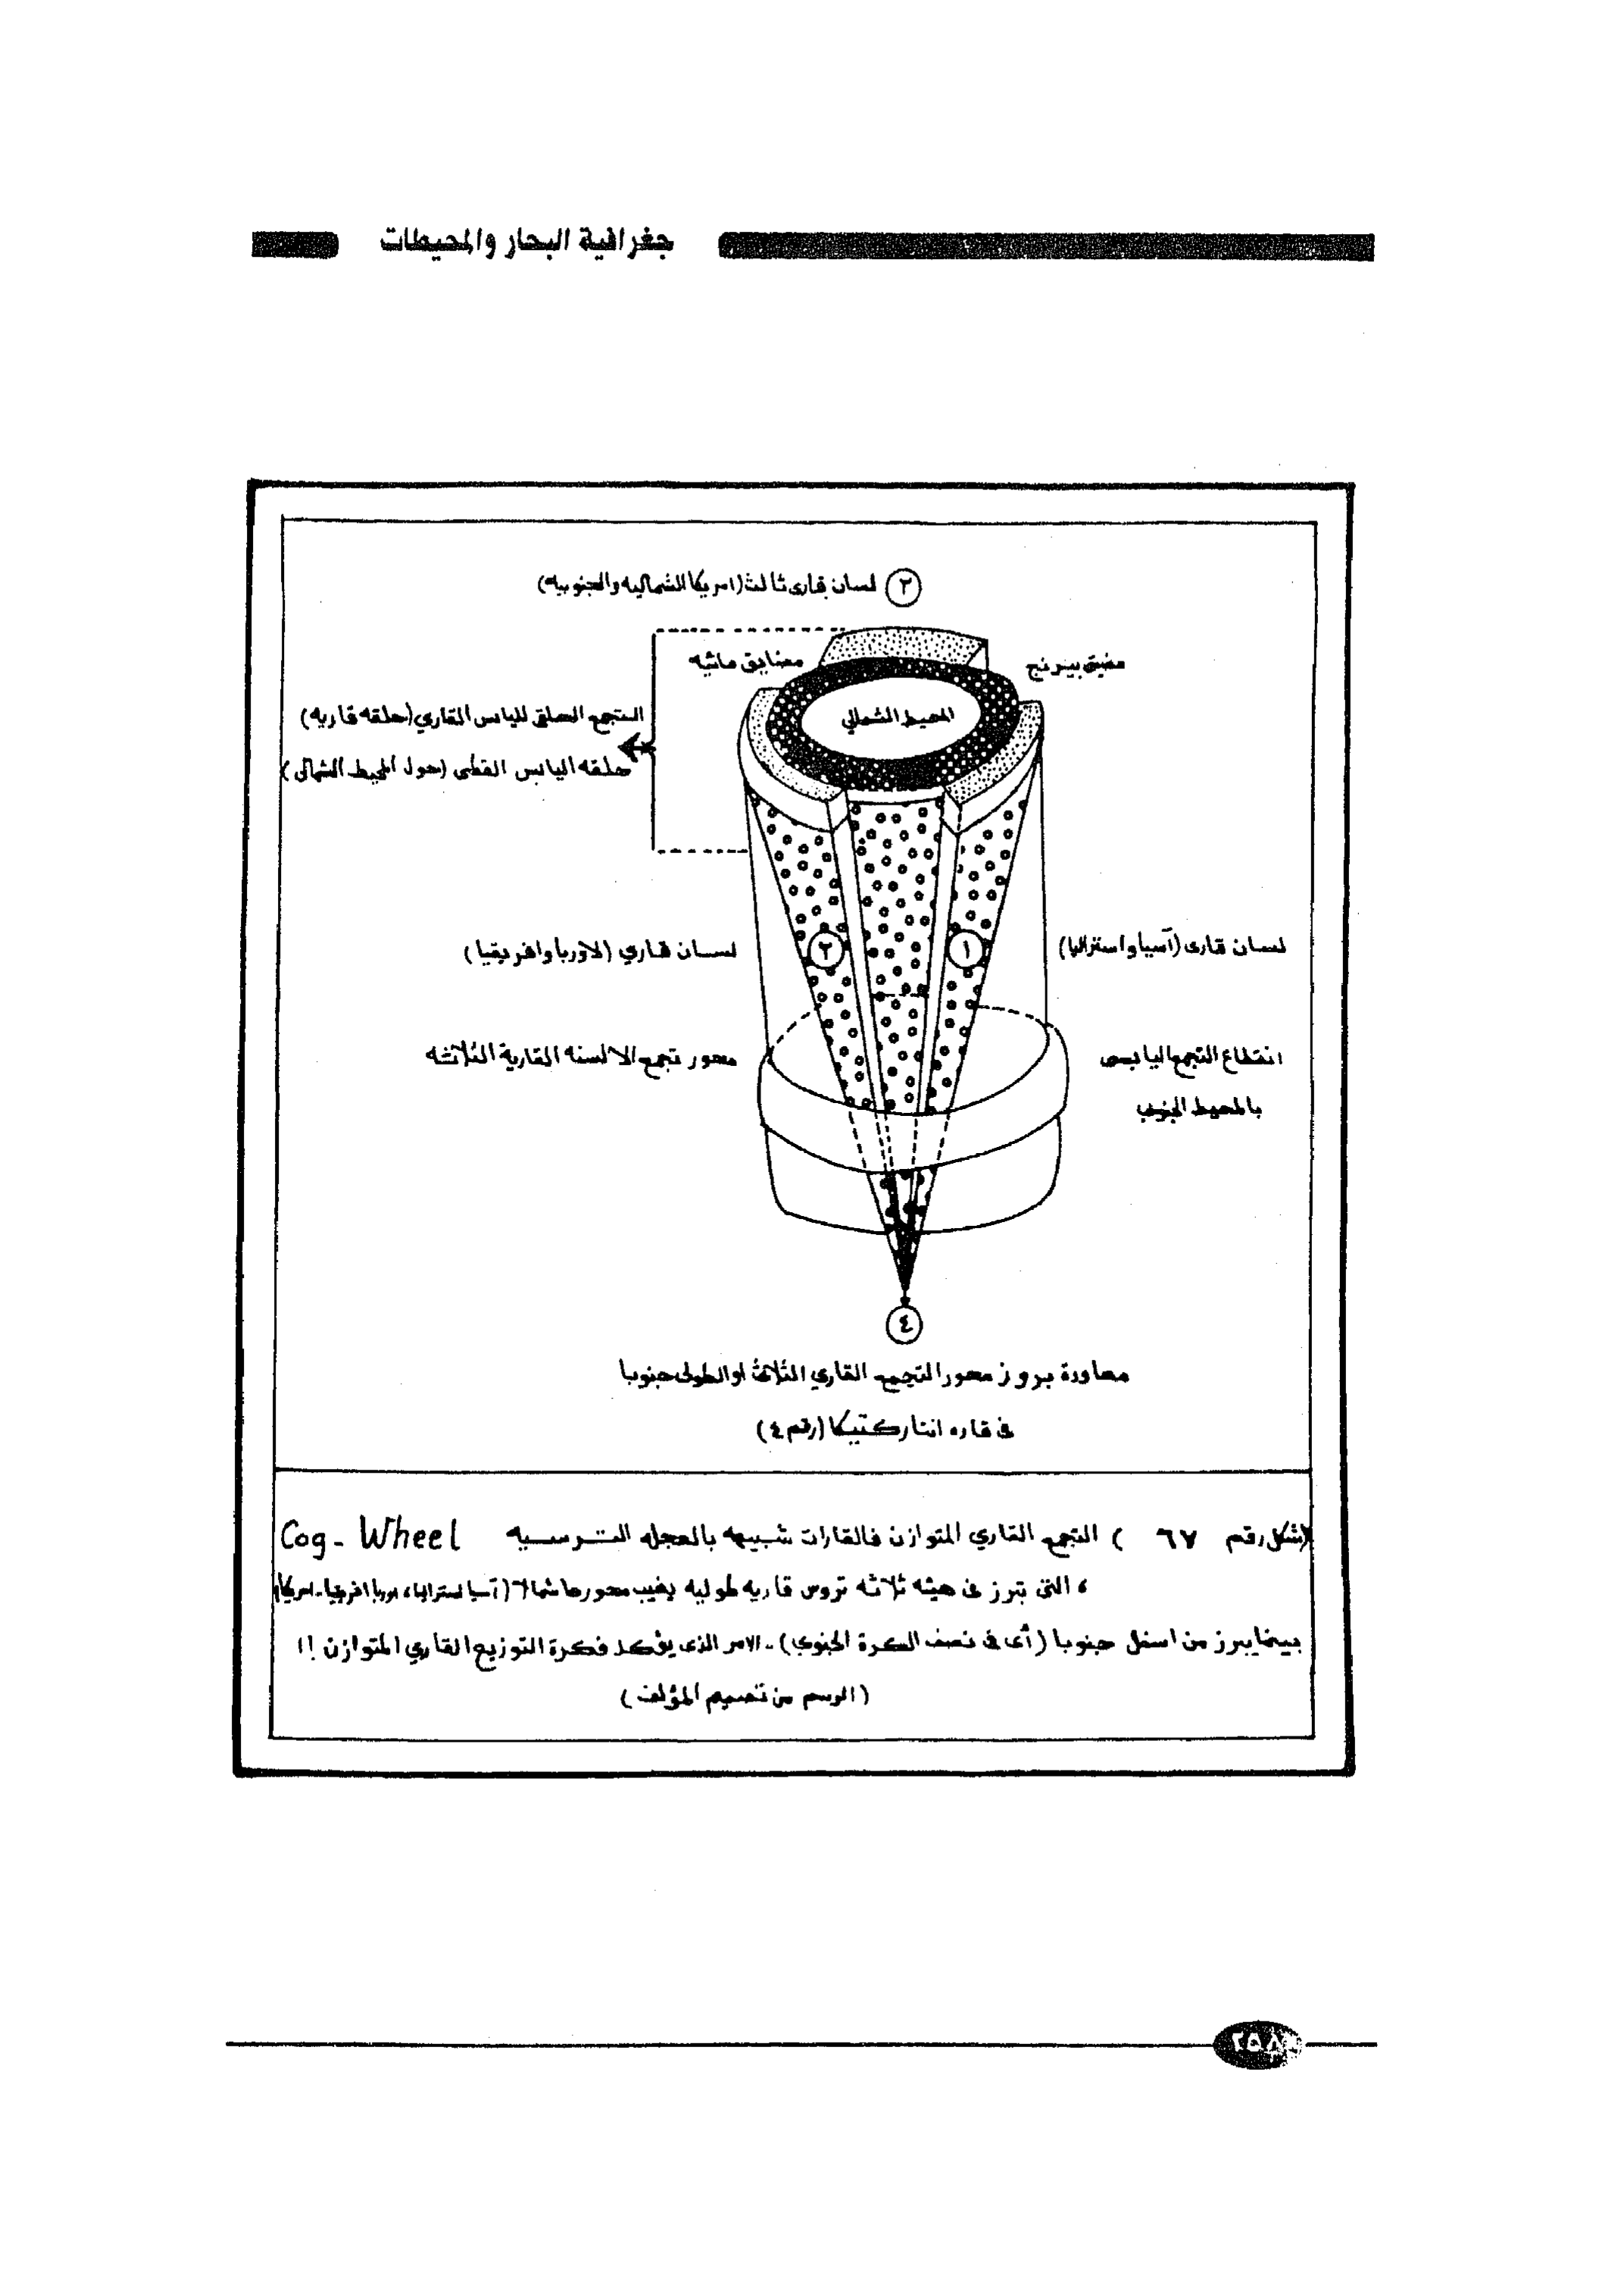 جغرافية البحار والمحيطات
٣ لسان قارى ثالث (امريكا الشماليه والجنوبيه)
مضيق بيرنج
مضايق مائيه
المحيط الشمالي
التجمع الحلقى لليابس القاري (حلقه قاريه)
حلقه اليابس القطبى (حول المحيط الشمالى)
لسان قارى (آسيا واستراليا)
١
٢
لسان قاري (لاوربا وافريقيا)
انقطاع التجمع اليابس
بالمحيط الجنوبي
محور تجمع الالسنه القارية الثلاثه
٤
معاودة بروز محور التجمع القاري الثلاثى او الطولى جنوبا
فى قاره انتاركتيكا (رقم ٤)
(شكل رقم ٦٧ ) التجمع القاري المتوازن فالقارات شبيهه بالعجله الترسيه Cog - Wheel
، التى تبرز فى هيئه ثلاثه تروس قاريه طوليه يغيب محورها شمالا (آسيا استراليا، اوربا افريقيا - امريكا)
بينما يبرز من اسفل جنوبا (أى فى نصف الكرة الجنوبي) - الامر الذى يؤكد فكرة التوزيع القاري المتوازن !!
(الرسم من تصميم المؤلف)
٢٥٨